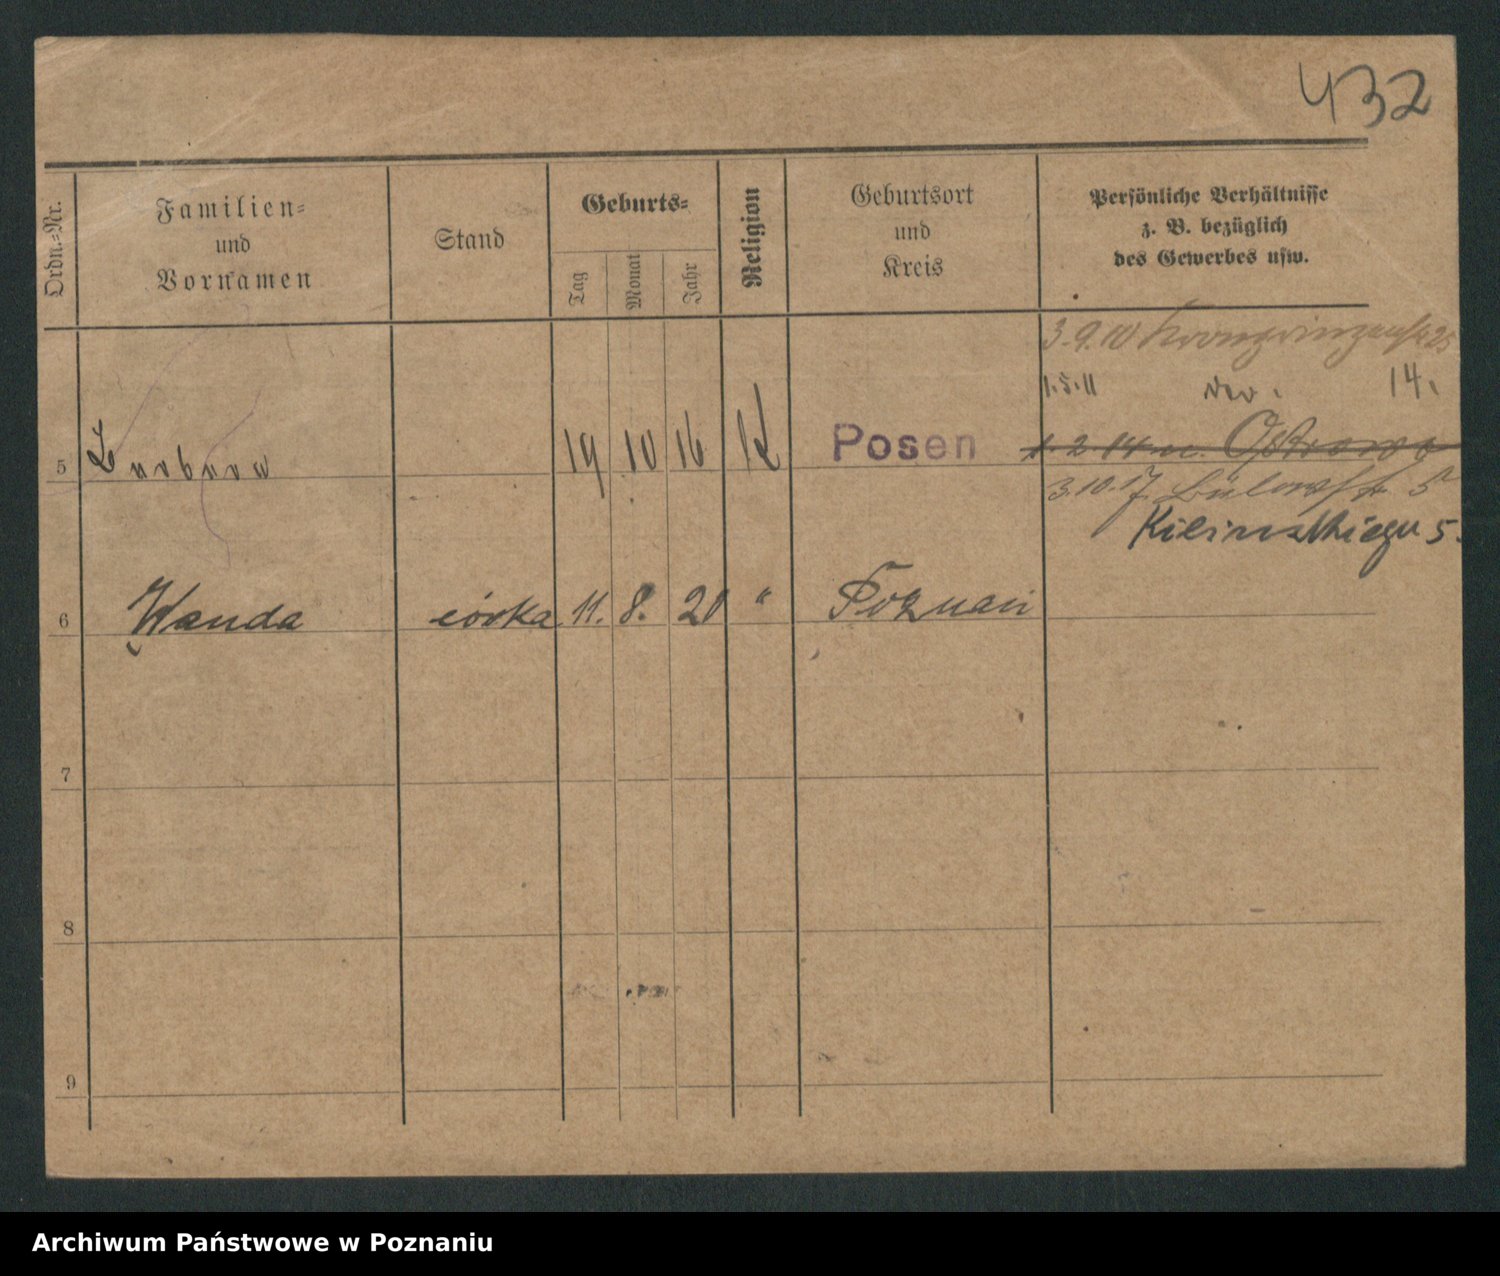 432
Ordn.=Nr.
Familien=
und
Vornamen
Stand
Geburts=
Tag
Monat
Jahr
Religion
Geburtsort
und
Kreis
Persönliche Verhältnisse
z. B. bezüglich
des Gewerbes usw.
3.9.10 Kronprinzenstr 25
1.5.11 14.
5 Barbara 19 10 16 K Posen
1.2.14 Ostrowo
3.10.17 Bülowstr 5
5.
6 Wanda córka 11. 8. 20 " Poznań
7
8
9
Archiwum Państwowe w Poznaniu